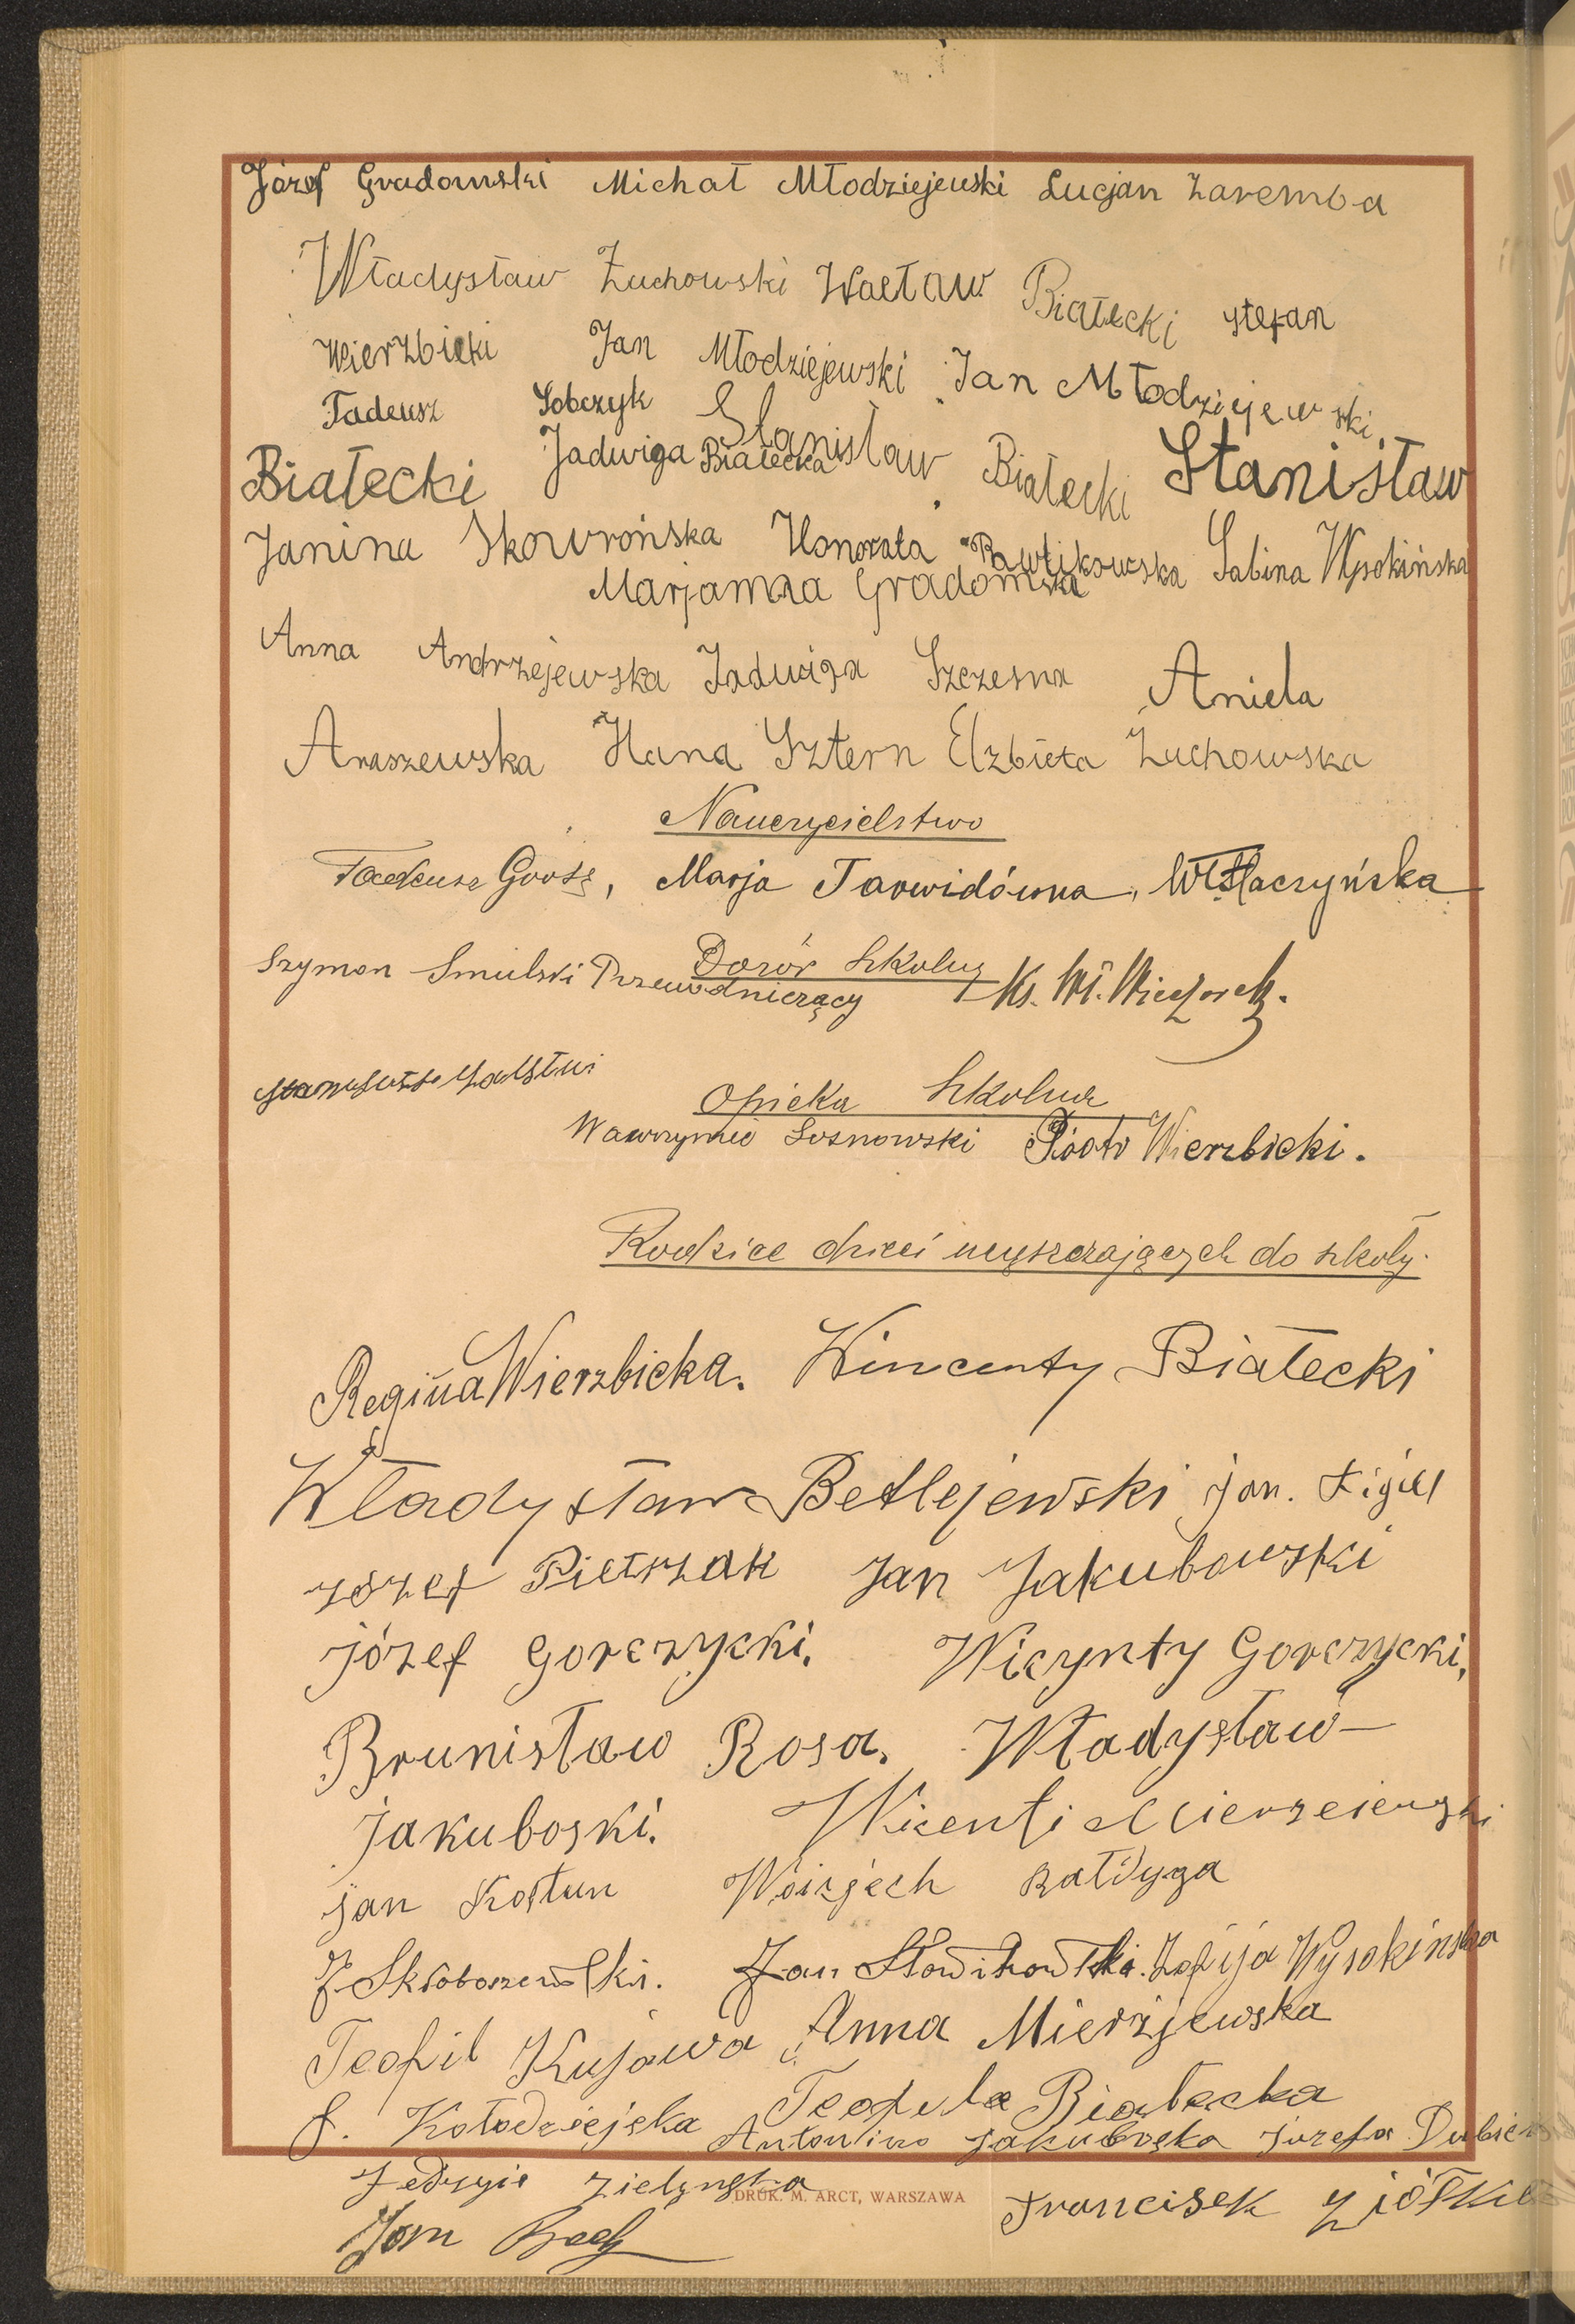 Józef Gradowski Michał Młodziejewski Lucjan Zaremba
Władysław Żuchowski Wacław Białecki Stefan
Wierzbicki Jan Młodziejewski Jan Młodziejewski
Tadeusz Sobczyk Stanisław Białecki Stanisław
Białecki Jadwiga Białecka
Janina Skowrońska Honorata Pawlikowska Sabina Wysokińska
Marjanna Gradowska
Anna Andrzejewska Jadwiga Szczesna Aniela
Araszewska Hana Sztern Elzbieta Żuchowska
Nauczycielstwo
Tadeusz Marja Tarwidówna,
Dozór Szkolny
Szymon Smulski Przewodniczący Ks. Wł. Wieczorek.
Opieka Szkolna
Wawrzyniec Sosnowski Piotr Wierzbicki.
Rodzice dzieci uczęszczających do szkoły.
Regina Wierzbicka. Wincenty Białecki
Władysław Betlejewski Jan.
Józef Pietrzak Jan Jakubowski
Józef Gorczycki. Wicynty Gorczycki.
Brunisław Rosa. Władysław
Jakuboski. Wicenti Mierzeiewski
Jan Kołtun Woicjech Rałdyga
Jan Zofija Wysokinska
Teofil Kujawa Anna Mierzjewska
Teofila Białecka
J. Kołodziejska Antonina Jakuboska Jozefa
Zielynska
Francisek
Jan
DRUK. M. ARCT, WARSZAWA